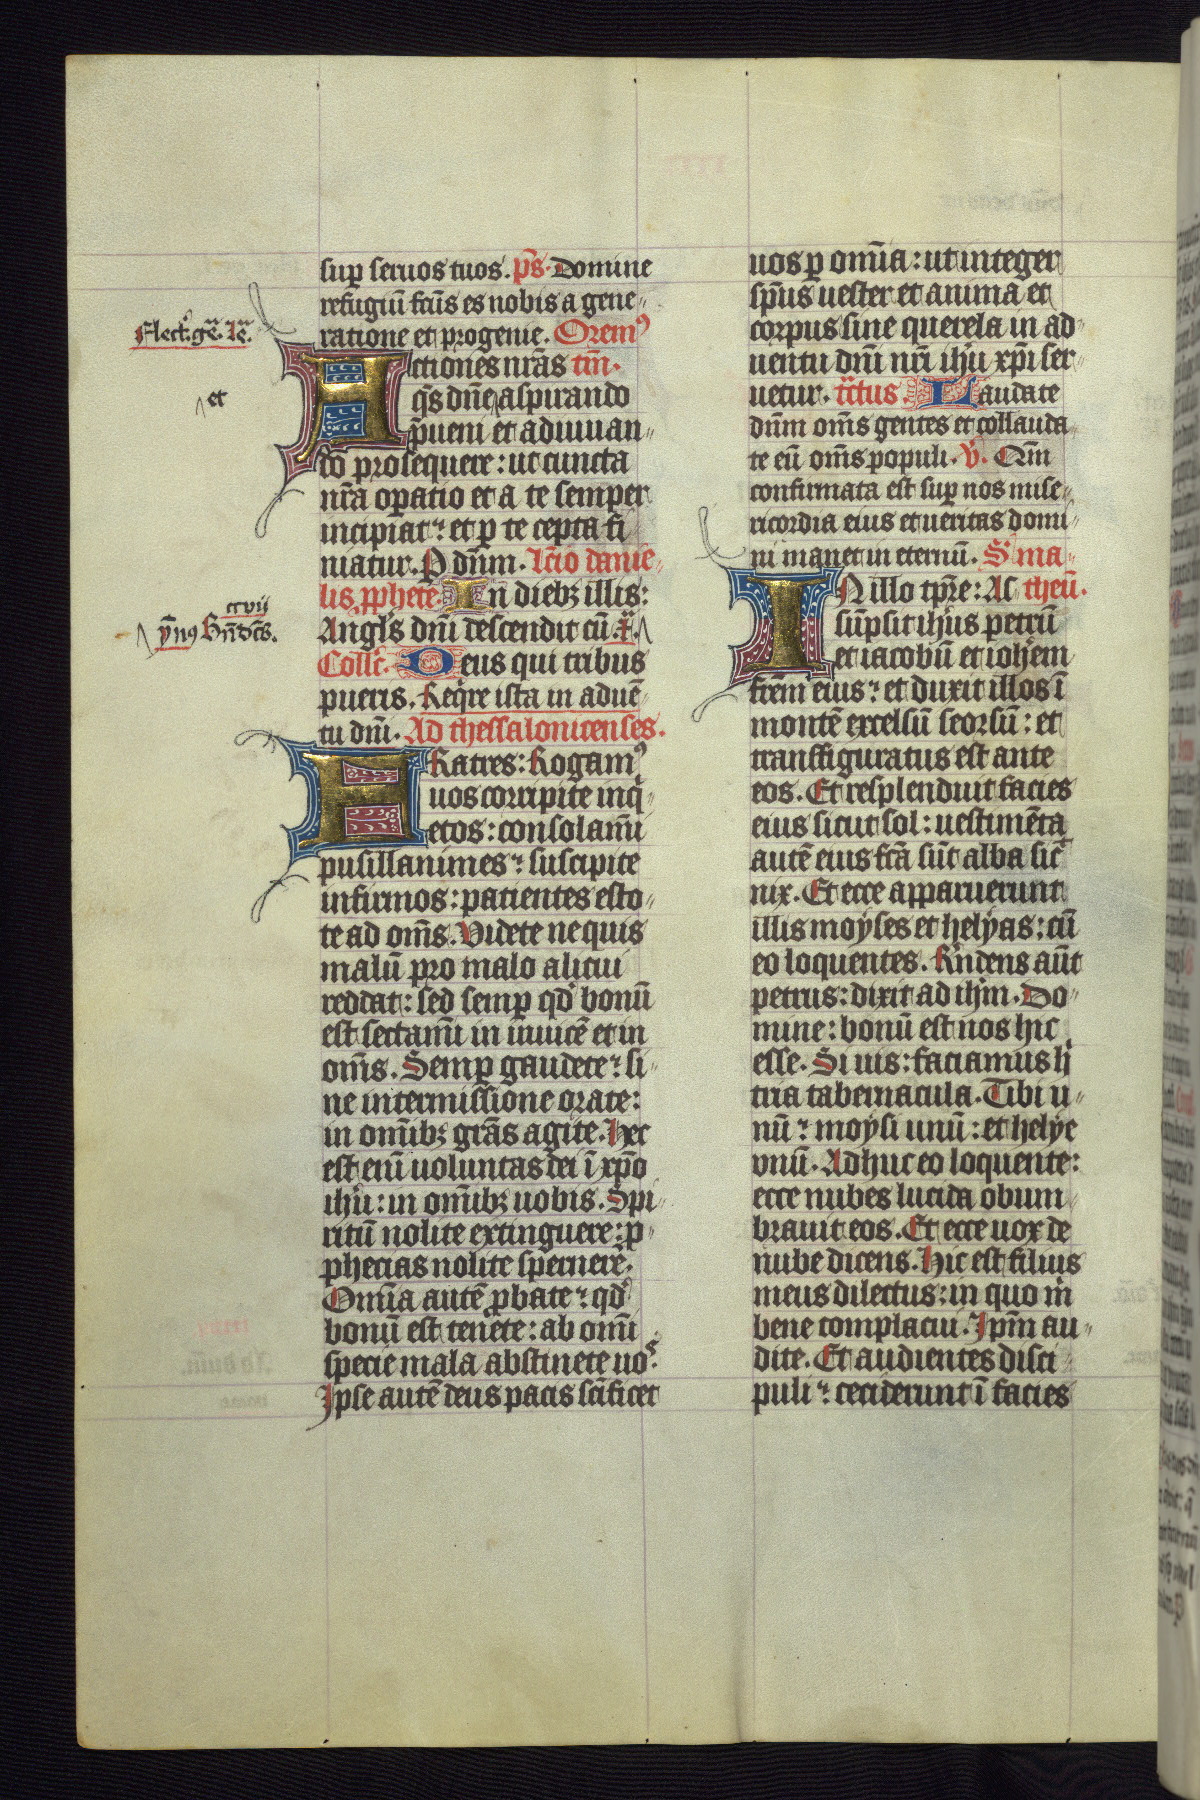 sup seruos tuos. p̄s. Domine
refugiū fc̄us es nobis a gene
ratione et progenie. Orem⁹
Flect. gē. Lē.
Actiones nr̄as tm̄.
q̄s dn̄e aspirando
et
p̄ueni et adiuuan
do prosequere: ut cuncta
nr̄a op̄atio et a te semper
incipiat: et p te cepta fi
niatur. P dn̄m. Lc̄io danie
lis pphete. In diebꝫ illis:
Angl's dn̄i descendit cū
Coll'c. Deus qui tribus
pueris. Req̄re ista in aduē
tu dn̄i. Ad thessalonicenses.
Fratres: Rogam⁹
uos corripite inq̄
etos: consolam̄i
pusillanimes: suscipite
infirmos: patientes esto
te ad om̄s. Videte ne quis
malū pro malo alicui
reddat: sed semp qd' bonū
est sectam̄i in inuicē et in
om̄s. Semp gaudete: si
ne intermissione orate:
in om̄ibꝫ grās agite. Hec
est eni̅ uoluntas dei ī xp̄o
ihū: in om̄ibꝫ uobis. Spi
ritū nolite extinguere: p
phecias nolite spernere.
Omīa autē p̄bate: qd'
bonū est tenete: ab om̄i
specie mala abstinete uoˢ.
Ipse autē deus pacis sc̄ificet
uos p omīa: ut integer
sp̄us uester et anima et
corpus sine querela in ad
uentu dn̄i nr̄i ihū xp̄i ser
uetur. tc̄tus. Laudate
dn̄m om̄s gentes et collauda
te eū om̄s populi. v̄. Qm̄
confirmata est sup nos mise
ricordia eius et ueritas domi
ni manet in eternū. S' ma
In illo tp̄re: As theū.
sūpsit ih̄us petrū
et iacobū et ioh̄em
frēm eius: et duxit illos ī
montē excelsū seorsū: et
transfiguratus est ante
eos. Et resplenduit facies
eius sicut sol: uestimēta
autē eius fc̄a sūt alba sic̄
nix. Et ecce apparuerunt
illis moyses et helyas: cū
eo loquentes. R̄ndens aūt
petrus: dixit ad ihm̄. Do
mine: bonū est nos hic
esse. Si uis: faciamus h̄
tria tabernacula. Tibi u
nū: moysi unū: et helye
vnū. Adhuc eo loquente:
ecce nubes lucida obum
brauit eos. Et ecce uox de
nube dicens. Hic est filius
meus dilectus: in quo m̄
bene complacui. Ipm̄ au
dite. Et audientes disci
puli: ceciderunt ī facies